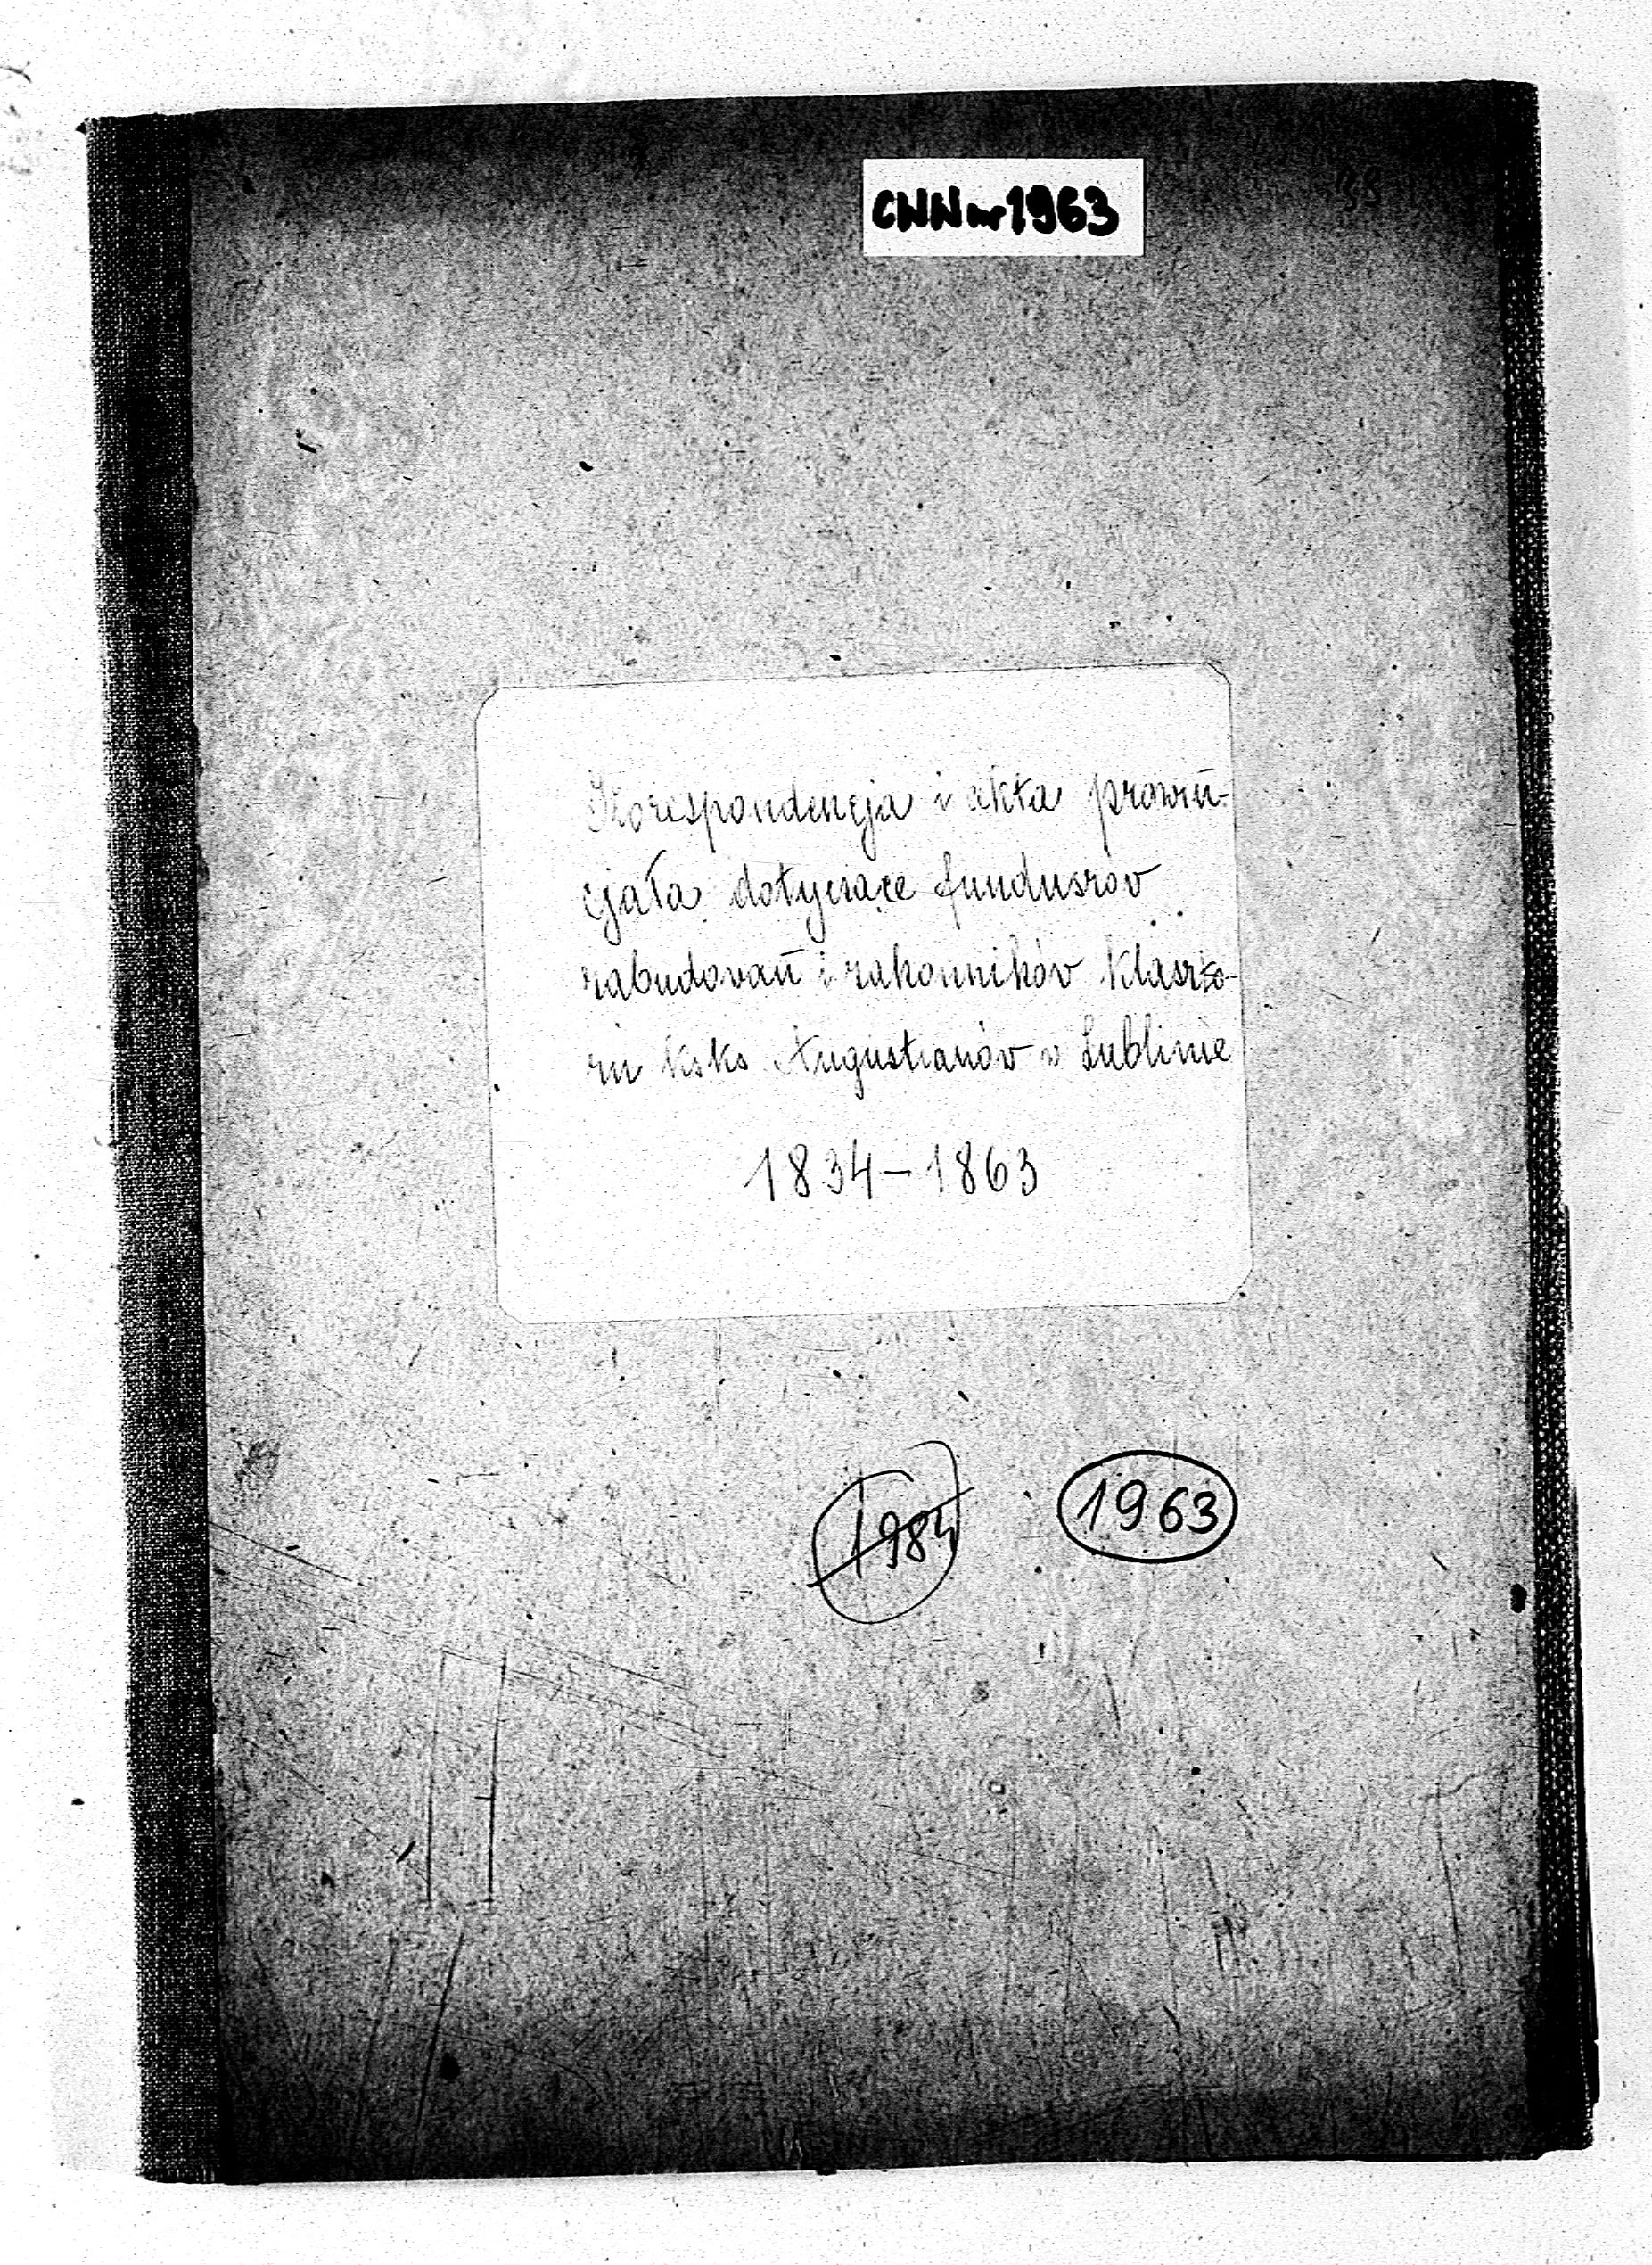 CWW nr 1963
Korespondencja i akta prowin-
cjała dotyczące funduszów
zabudowań i zakonników klaszto-
ru ksks Augustianów w Lublinie
1834-1863
1984
1963